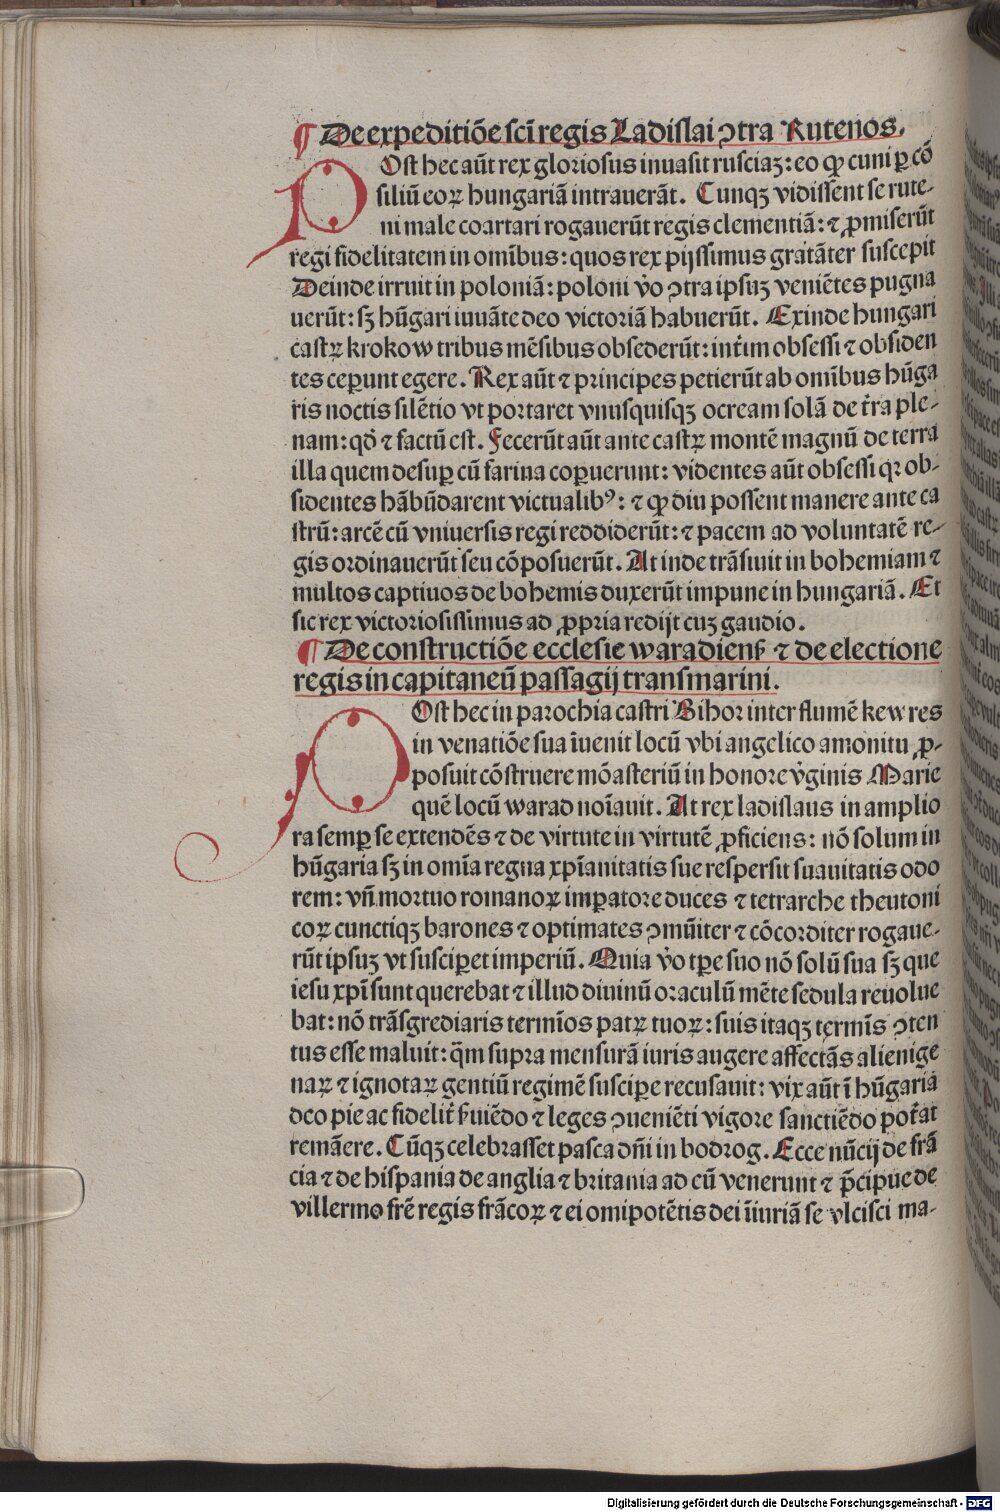 ¶ De expeditiõe scĩ regis Ladislai ↄtra Rutenos.
POst hec aũt rex gloriosus inuasit rusciaʒ: eo ꝙ cuni ꝑ cõ
siliũ eoꝝ hungariã intrauerãt. Cunqʒ vidissent se rute-
ni male coartari rogauerũt regis clementiã: ⁊ ꝓmiserũt
regi fidelitatem in om̃ibus: quos rex pijssimus gratãter suscepit
Deinde irruit in poloniã: poloni ṽo ↄtra ipsuʒ veniẽtes pugna
uerũt: sʒ hũgari iuuãte deo victoriã habuerũt. Exinde hungari
castꝝ krokow tribus mẽsibus obsederũt: int̃im obsessi ⁊ obsiden
tes ceꝑunt egere. Rex aũt ⁊ principes petierũt ab om̃ibus hũga
ris noctis silẽtio vt portaret vnusquisqʒ ocream solã de t̃ra ple-
nam: qđ ⁊ factũ est. Fecerũt aũt ante castꝝ montẽ magnũ de terra
illa quem desuꝑ cũ farina coꝑuerunt: videntes aũt obsessi qꝛ ob-
sidentes hãbũdarent victualibꝰ: ⁊ ꝙ diu possent manere ante ca
strũ: arcẽ cũ vniuersis regi reddiderũt: ⁊ pacem ad voluntatẽ re-
gis ordinauerũt seu cõposuerũt. At inde trãsiuit in bohemiam ⁊
multos captiuos de bohemis duxerũt impune in hungariã. Et
sic rex victoriosissimus ad ꝓpria redijt cuʒ gaudio.
¶ De constructiõe ecclesie waradienẜ ⁊ de electione
regis in capitaneũ passagij transmarini.
POst hec in parochia castri Bihor inter flumẽ kewres
in venatiõe sua ĩuenit locũ vbi angelico amonitu ꝓ-
posuit cõstruere mõasteriũ in honore ṽginis Marie
quẽ locũ warad noĩauit. At rex ladislaus in amplio
ra semꝑ se extendẽs ⁊ de virtute in virtutẽ ꝓficiens: nõ solum in
hũgaria sʒ in om̃ia regna xp̃ianitatis sue respersit suauitatis odo
rem: vñ mortuo romanoꝝ imꝑatore duces ⁊ tetrarche theutoni
coꝝ cunctiqʒ barones ⁊ optimates ↄmũiter ⁊ cõcorditer rogaue-
rũt ipsuʒ vt susciꝑet imperiũ. Quia ṽo tꝑe suo nõ solũ sua sʒ que
iesu xp̃i sunt querebat ⁊ illud diuinũ oraculũ mẽte sedula reuolue
bat: nõ trãsgrediaris termĩos patꝝ tuoꝝ: suis itaqʒ termĩs ↄten
tus esse maluit: q̃m supra mensurã iuris augere affectãs alienige
naꝝ ⁊ ignotaꝝ gentiũ regimẽ susciꝑe recusauit: vix aũt ĩ hũgaria
deo pie ac fidelit̃ ẜuiẽdo ⁊ leges ↄueniẽti vigore sanctiẽdo pot̃at
remãere. Cũqʒ celebrasset pasca dñi in bodrog. Ecce nũcij de frã
cia ⁊ de hispania de anglia ⁊ britania ad eũ venerunt ⁊ p̃cipue de
villermo frẽ regis frãcoꝝ ⁊ ei om̃ipotẽtis dei ĩiuriã se vlcisci ma-
Digitalisierung gefördert durch die Deutsche Forschungsgemeinschaft - DFG